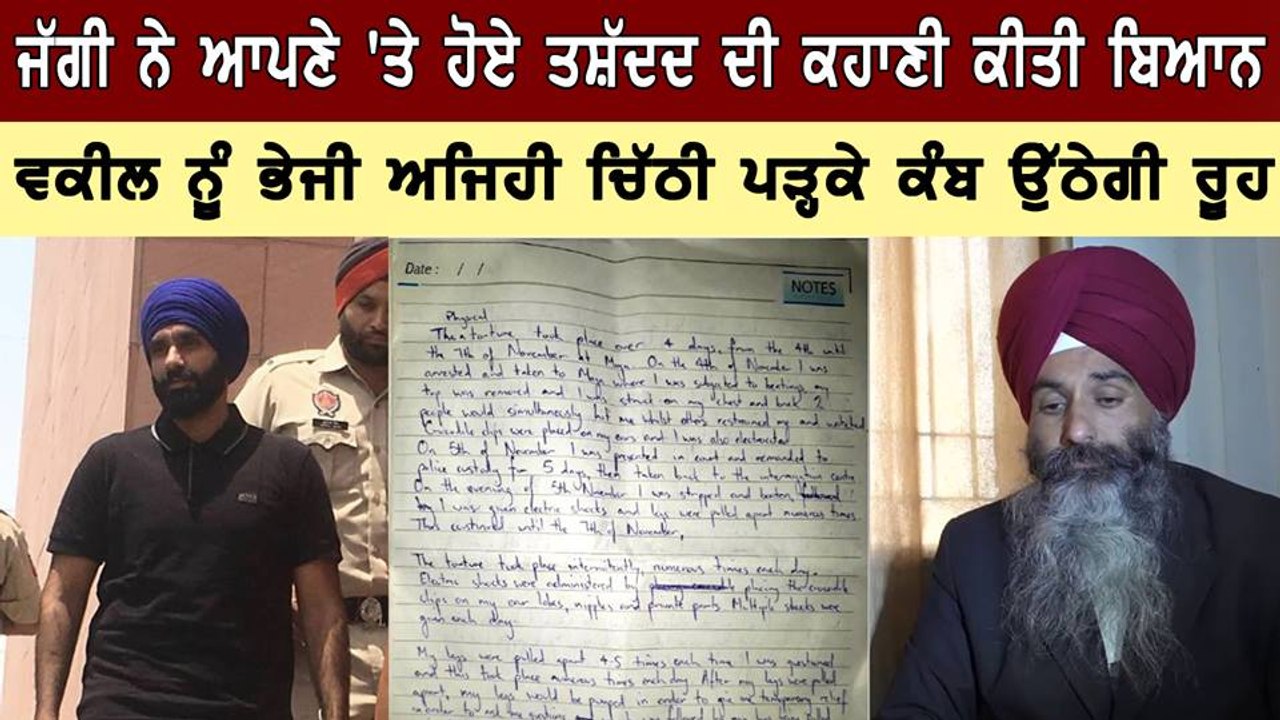 ਜੱਗੀ ਨੇ ਆਪਣੇ 'ਤੇ ਹੋਏ ਤਸ਼ੱਦਦ ਦੀ ਕਹਾਣੀ ਕੀਤੀ ਬਿਆਨ
ਵਕੀਲ ਨੂੰ ਭੇਜੀ ਅਜਿਹੀ ਚਿੱਠੀ ਪੜ੍ਹਕੇ ਕੰਬ ਉੱਠੇਗੀ ਰੂਹ
Date : / /
NOTES
Physical
The torture took place over 4 days, from the 4th until
the 7th of November at Moga. On the 4th of November I was
arrested and taken to Moga where I was subjected to beatings, my
top was removed and I was struck on my chest and back 2
people would simultaneously hit me whilst others restrained me and watched
Crocodile clips were placed on my ears and I was also electrocuted
On 5th of November I was presented in court and remanded to
police custody for 5 days then taken back to the interrogation centre
On the evening of 5th November I was stripped and beaten,
I was given electric shocks and legs were pulled apart numerous times.
That continued until the 7th of November,
The torture took place intermittently, numerous times each day.
Electric shocks were administered by placing the crocodile
clips on my ear lobes, nipples and private parts. Multiple shocks were
given each day.
My legs were pulled apart 4-5 times each time I was questioned
and this took place numerous times each day. After my legs were pulled
apart, my legs would be pumped in order to give me temporary relief
in order to ask me questions I was followed by my legs being pulled